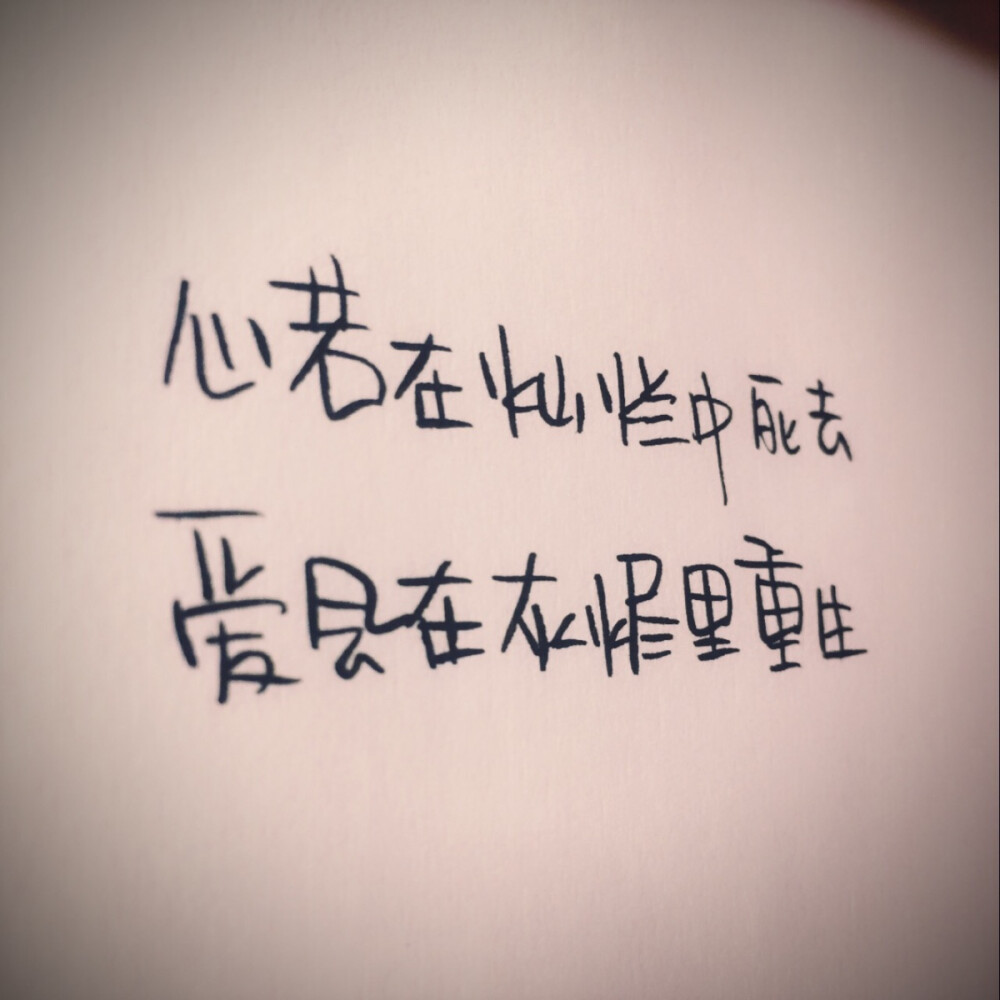 心若在灿烂中死去
爱会在灰烬里重生